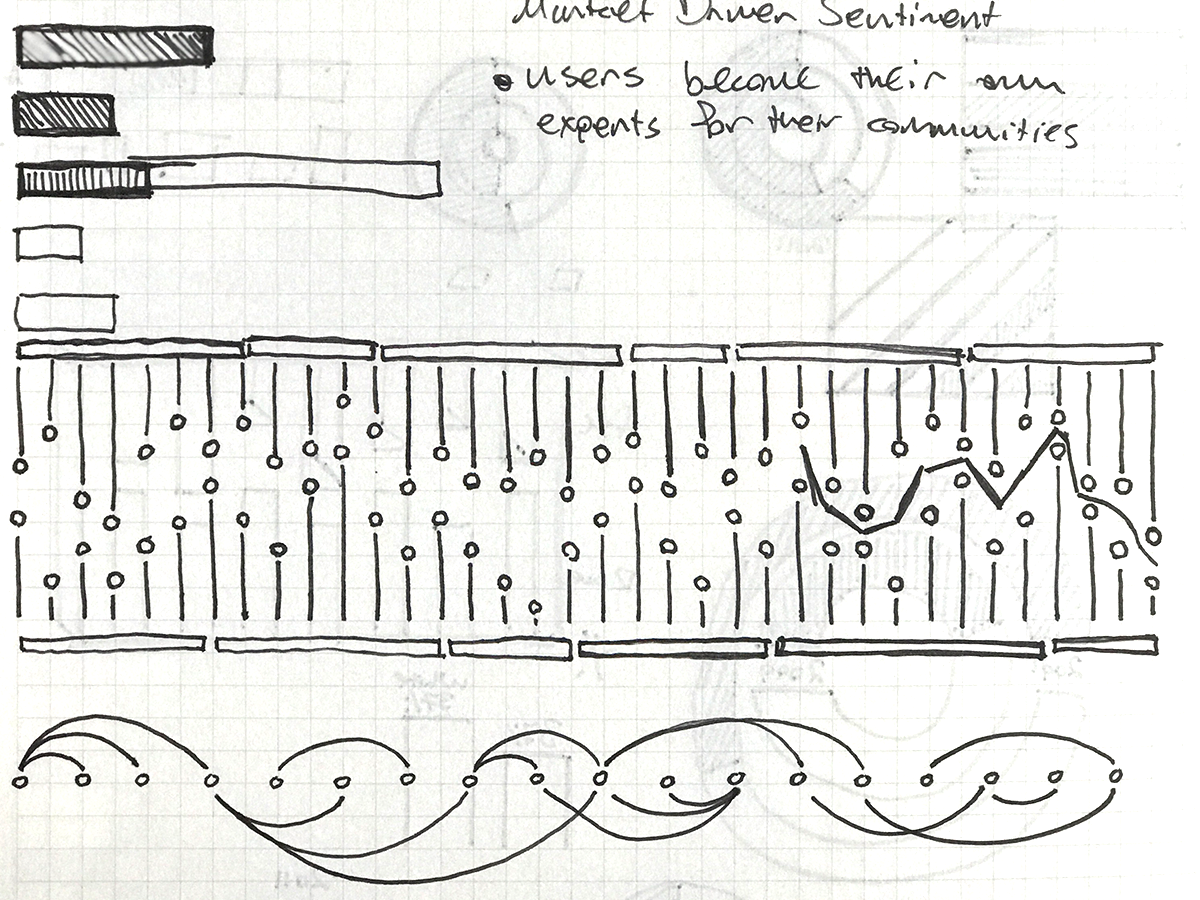 Market Driven Sentiment
• users become their own
experts for their communities